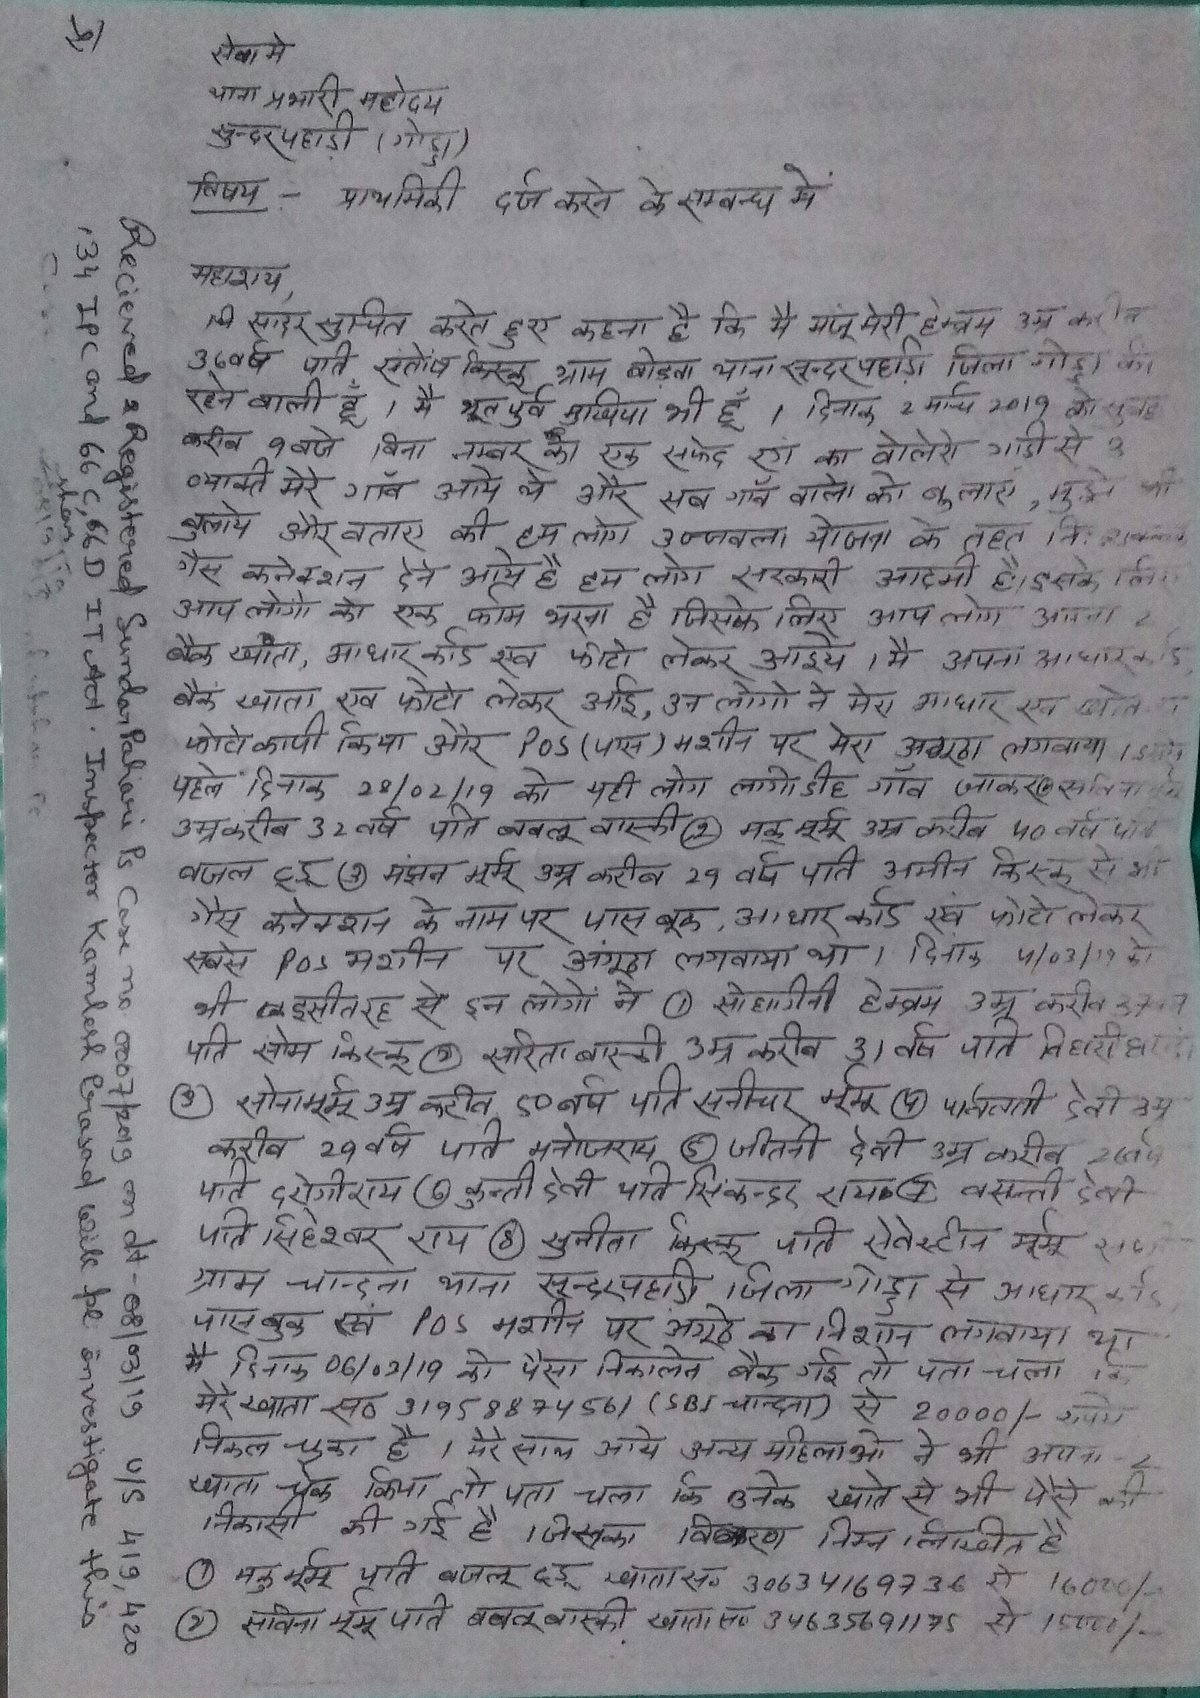 सेवा मे
थाना प्रभारी महोदय
सुन्दरपहाड़ी (गोड्डा)
विषय :- प्राथमिकी दर्ज करने के सम्बन्ध में
महाशय,
सादर सुचित करते हुए कहना है कि मै मंजू मेरी हेम्ब्रम उम्र करीब
36 वर्ष पति संतोष किस्कू ग्राम बोड़वा थाना सुन्दरपहाड़ी जिला गोड्डा की
रहने वाली हूँ । मै भूतपुर्व मुखिया भी हूँ । दिनाक 2 मार्च 2019 को सुबह
करीब 9 वजे बिना नम्बर की एक सफेद रंग का वोलेरो गाडी से 3
व्याक्ति मेरे गाँव आये थे और सब गाँव वाले को बुलाए, मुझे भी
बुलाये और वताए की हम लोग उज्जवला योजना के तहत निःशुल्क
गैस कनेक्शन देने आये है हम लोग सरकारी आदमी है। इसके लिए
आप लोगो को एक फॉम भरना है जिसके लिए आप लोग अपना 2
बैंक खाता, आधार कॉड एव फोटो लेकर आइये । मै अपना आधार कॉड,
बैंक खाता एव फोटो लेकर आई, उन लोगो ने मेरा आधार एव खाते का
फोटो कापी किया और POS (पास) मशीन पर मेरा अंगूठा लगवाया । इससे
पहले दिनाक 28/02/19 को यही लोग लागोडीह गाँव जाकर ① सविना मुर्मू
उम्र करीब 32 वर्ष पति बबलू बास्की ② मकू मूर्मू उम्र करीब 40 वर्ष पति
वजल टुडू ③ मंझन मूर्मू उम्र करीब 29 वर्ष पति अमीन किस्कू से भी
गैस कनेक्शन के नाम पर पास बूक, आधार कॉड एवं फोटो लेकर
सबसे POS मशीन पर अंगूठा लगवाया था । दिनाक 4/03/19 को
भी इसी तरह से इन लोगों ने ① सोहागीनी हेम्ब्रम उम्र करीब 37 वर्ष
पति सोम किस्कू ② सरिता बास्की उम्र करीब 31 वर्ष पति विहारी
③ सोनामूर्मू उम्र करीव 50 वर्ष पति सनीचर मूर्मू ④ पार्वती देवी उम्र
करीब 29 वर्ष पति मनोजराय ⑤ जीतनी देवी उम्र करीब 26 वर्ष
पति दरोगीराय ⑥ कुन्ती देवी पति सिकन्दर राय ⑦ वसन्ती देवी
पति सिंहेश्वर राय ⑧ सुनीता किस्कू पति सेवेस्टीन मूर्मू सभी
ग्राम चान्दना थाना सून्दरपहाड़ी जिला गोड्डा से आधार कॉड,
पास बुक एवं POS मशीन पर अंगूठे का निशान लगवाया था
मै दिनाक 06/03/19 को पैसा निकालने बैंक गई तो पता चला कि
मेरे खाता स० 31958874561 (SBI चान्दना) से 20000/- रूपये
निकल चूका है । मेरे साथ आये अन्य महिलाओ ने भी अपना-2
खाता चेक किया तो पता चला कि उनके खाते से भी पैसे की
निकासी की गई है जिसका विवरण निम्न लिखीत है
① मकु मूर्मू पति वजलू टुडू खाता स० 30634169736 से 16000/-
② सविना मूर्मू पति बबलू बास्की खाता स० 34635691175 से 15000/-
Recieved & Registered Sunder Pahari Ps Case no 0007/2019 on dt - 08/03/19 U/S 419, 420
,34 IPC and 66 C, 66D IT Act. Inspector Kamlesh Prasad will pl. investigate this